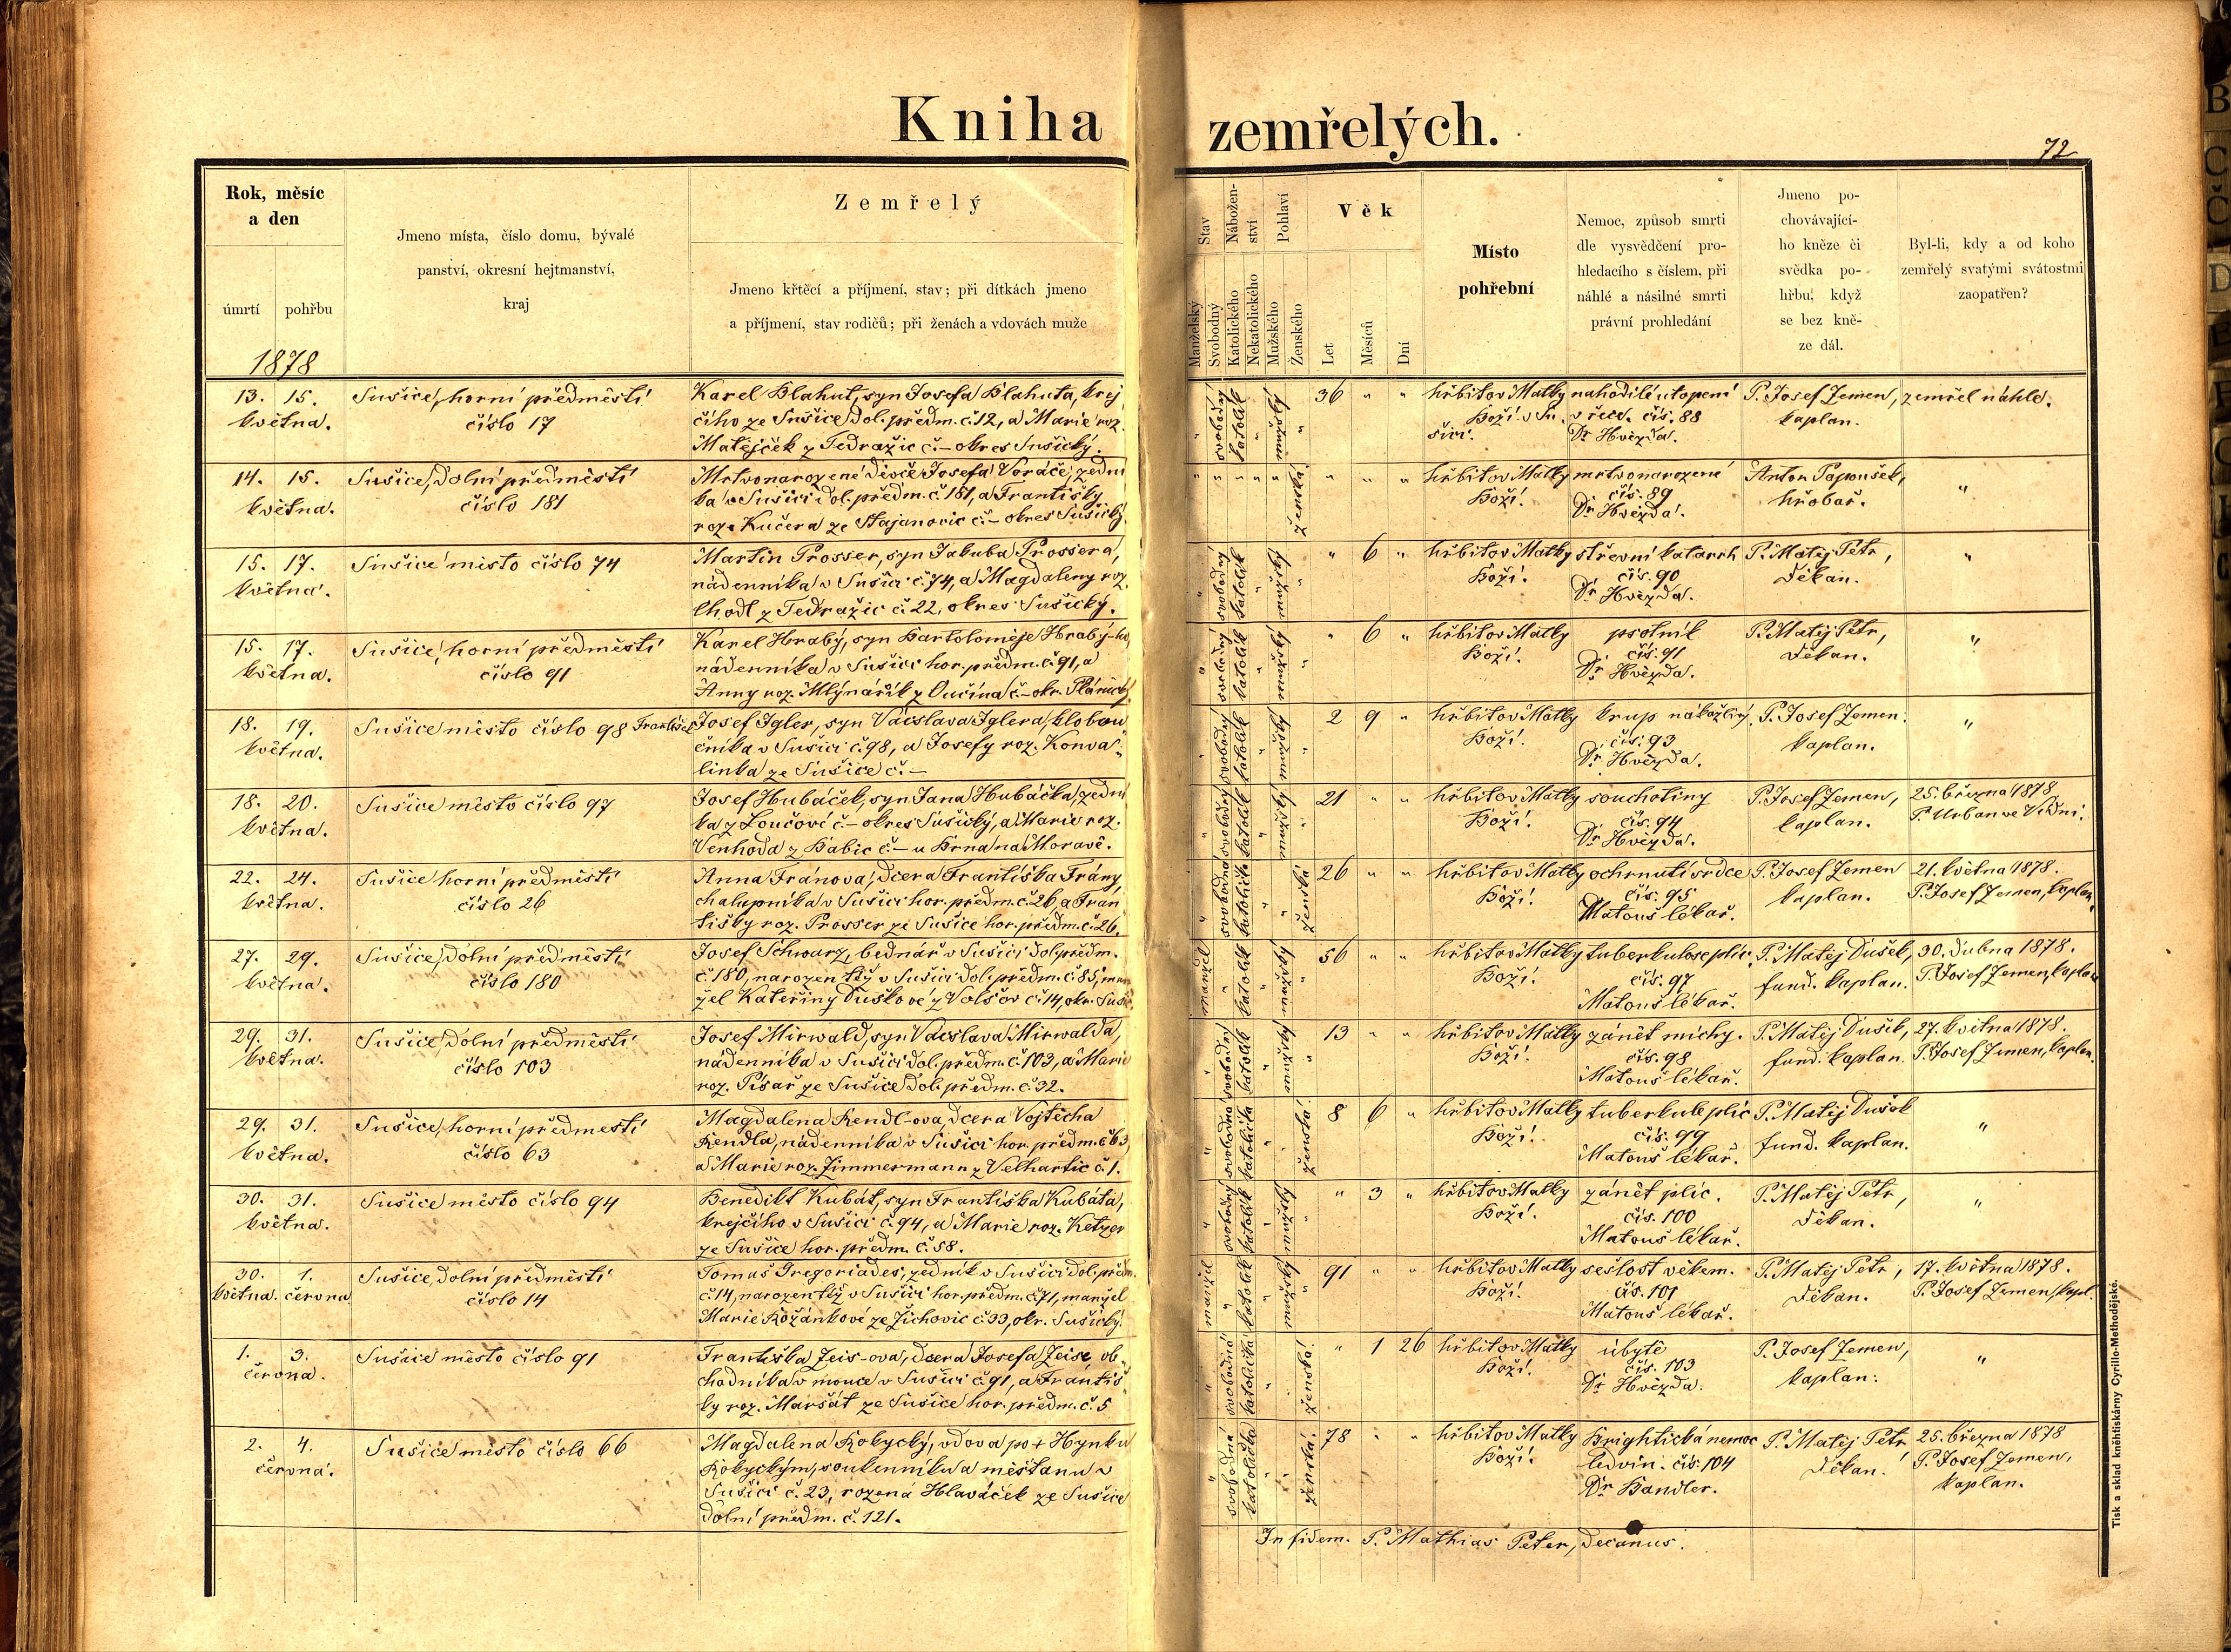 Kniha zemřelých.
72
Rok, měsíc
a den
úmrtí pohřbu
1878
Jmeno místa, číslo domu, bývalé
panství, okresní hejtmanství,
kraj
Zemřelý
Jmeno křtěcí a příjmení, stav; při dítkách jmeno
a příjmení, stav rodičů; při ženách a vdovách muže
Stav
Manželský
Svobodný
Nábožen-
ství
Katolického
Nekatolického
Pohlaví
Mužského
Ženského
Věk
Let
Měsíců
Dní
Místo
pohřební
Nemoc, způsob smrti
dle vysvědčení pro-
hledacího s číslem, při
náhlé a násilné smrti
právní prohledání
Jmeno po-
chovávající-
ho kněze či
svědka po-
hřbu, když
se bez kně-
ze dál.
Byl-li, kdy a od koho
zemřelý svatými svátostmi
zaopatřen?
13. 15. Sušice, horní předměstí Karel Blahut, syn Josefa Blahuta, krej
května. číslo 17 čího ze Sušice dol. předm. č. 12, a Marie roz.
Matějček z Tedražic č. – okres Sušický.
" svobodný katolík " mužský " 36 " " hřbitov Matky nahodilé utopení P. Josef Zemen, zemřel náhle.
Boží v Su v řece. čís. 88 kaplan.
šici. Dr. Hvězda.
14. 15. Sušice, dolní předměstí Mrtvonarozené děvče Josefa Voráče, zední
května. číslo 181 ka v Sušici dol. předm. č. 181, a Františky
roz. Kučera ze Stajanovic č. – okres Sušický.
" " " " " ženská " " " hřbitov Matky mrtvonarozené Anton Papoušek,
Boží. čís. 89 hrobař. "
Dr. Hvězda.
15. 17. Sušice město číslo 74 Martin Prosser, syn Jakuba Prossera,
května. nádenníka v Sušici č. 74, a Magdaleny roz.
Chodl z Tedražic č. 22, okres Sušický.
" svobodný katolík " mužský " " 6 " hřbitov Matky střevní katarrh P. Matěj Petr, "
Boží. čís. 90 děkan.
Dr. Hvězda.
15. 17. Sušice, horní předměstí Karel Hrabý, syn Bartoloměje Hrabý-ho,
května. číslo 91 nádenníka v Sušici hor. předm. č. 91, a
Anny roz. Mlynářík z Oučína č. – okr. Plánický
" svobodný katolík " mužský " " 6 " hřbitov Matky psotník P. Matěj Petr, "
Boží. čís. 91 děkan.
Dr. Hvězda.
18. 19. Sušice město číslo 98 František Josef Igler, syn Václava Iglera, klobou
května. čníka v Sušici č. 98, a Josefy roz. Konva-
linka ze Sušice č. –
" svobodný katolík " mužský " 2 9 " hřbitov Matky krup nakažlivý. P. Josef Zemen. "
Boží. čís. 93 kaplan.
Dr. Hvězda.
18. 20. Sušice město číslo 97 Josef Hubáček, syn Jana Hubáčka, zední
května. ka z Loučové č. – okres Sušický, a Marie roz.
Venhoda z Babic č. – u Brna na Moravě.
" svobodný katolík " mužský " 21 " " hřbitov Matky souchotiny P. Josef Zemen, 25. března 1878
Boží. čís. 94 kaplan. P. Urban ve Vídni.
Dr. Hvězda.
22. 24. Sušice horní předměstí Anna Fránova, dcera Františka Frány
května. číslo 26 chalupníka v Sušici hor. předm. č. 26, a Fran
tišky roz. Prosser ze Sušice hor. předm. č. 26.
" svobodná katolička " " ženská 26 " " hřbitov Matky ochrnutí srdce P. Josef Zemen 21. května 1878.
Boží. čís. 95 kaplan. P. Josef Zemen, kaplan.
Matouš lékař.
27. 29. Sušice, dolní předměstí Josef Schwarz, bednář v Sušici dol. předm.
května. číslo 180 č. 180, narozen též v Sušici dol. předm. č. 85, man
žel Kateřiny Duškové z Volšov č. 14, okr. Sušic
manžel " katolík " mužský " 56 " " hřbitov Matky tuberkulose plic. P. Matěj Dušek, 30. dubna 1878.
Boží. čís. 97 fund. kaplan. P. Josef Zemen, kaplan
Matouš lékař.
29. 31. Sušice, dolní předměstí Josef Mirwald, syn Václava Mirwalda,
května. číslo 103 nádenníka v Sušici dol. předm. č. 103, a Marie
roz. Písař ze Sušice dol. předm. č. 32.
" svobodný katolík " mužský " 13 " " hřbitov Matky zánět míchy. P. Matěj Dušek, 27. května 1878.
Boží. čís. 98 fund. kaplan. P. Josef Zemen, kaplan.
Matouš lékař.
29. 31. Sušice, horní předmestí Magdalena Rendl-ova, dcera Vojtěcha
května. číslo 63 Rendla, nádenníka v Sušici hor. předm. č. 63,
a Marie roz. Zimmermann z Velhartic č. 1.
" svobodná katolička " " ženská 8 6 " hřbitov Matky tuberkule plic P. Matěj Dušek "
Boží. čís. 99 fund. kaplan.
Matouš lékař.
30. 31. Sušice město číslo 94 Benedikt Kubát, syn Františka Kubáta,
května. krejčího v Sušici č. 94, a Marie roz. Ketzer
ze Sušice hor. předm. č. 58.
" svobodný katolík " mužský " " 3 " hřbitov Matky zánět plic. P. Matěj Petr, "
Boží. čís. 100 děkan.
Matouš lékař.
30. 1. Sušice, dolní předměstí Tomaš Gregoriades, zedník v Sušici dol. předm.
května. června číslo 14 č. 14, narozen též v Sušici hor. předm. č. 71, manžel
Marie Rožánkové ze Žichovic č. 33, okr. Sušický.
manžel " katolík " mužský " 91 " " hřbitov Matky sešlost věkem. P. Matěj Petr, 17. května 1878.
Boží. čís. 101 děkan. P. Josef Zemen, kapl.
Matouš lékař.
1. 3. Sušice město číslo 91 Františka Zeis-ova, dcera Josefa Zeise, ob-
června. chodníka v mouce v Sušici č. 91, a Františ
ky roz. Maršát ze Sušice hor. předm. č. 5
" svobodná katolička " " ženská " 1 26 hřbitov Matky úbytě P. Josef Zemen, "
Boží. čís. 103 kaplan.
Dr. Hvězda.
2. 4. Sušice město číslo 66 Magdalena Rokycký, vdova po + Hynku
června. Rokyckým, soukenníku a měšťanu v
Sušici č. 23, rozená Hlaváček ze Sušice
dolní předm. č. 121.
" svobodná katolička " " ženská 78 " " hřbitov Matky Brightická nemoc P. Matěj Petr 25. března 1878
Boží. ledvin. čís. 104 děkan. P. Josef Zemen,
Dr. Bandler. kaplan.
In fidem. P. Mathias Peter, decanus.
Tisk a sklad kněhtiskárny Cyrillo-Methodějské.